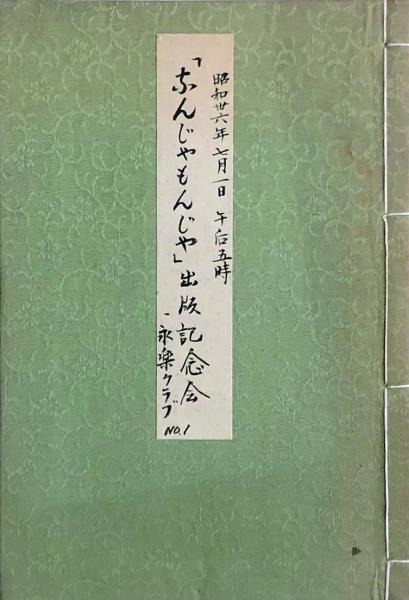 昭和卅六年七月一日 午后五時
「なんじゃもんじゃ」出版記念会
永楽クラブ
NO.1